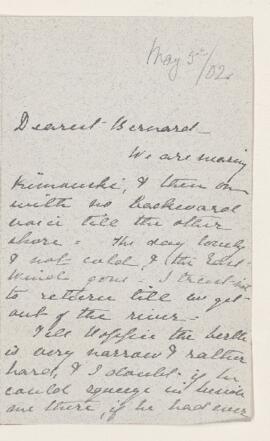 May 5th/02.
Dearest Bernard
We are nearing
Rimouski, & then on
with no backward
voice till the other
shore = The day lovely
& not cold, & the East
wind gone. I trust not
to return till we get
out of the river =
Tell Uffie the berth
is very narrow & rather
hard, & I doubt if he
could squeeze in beside
me there, if he had ever